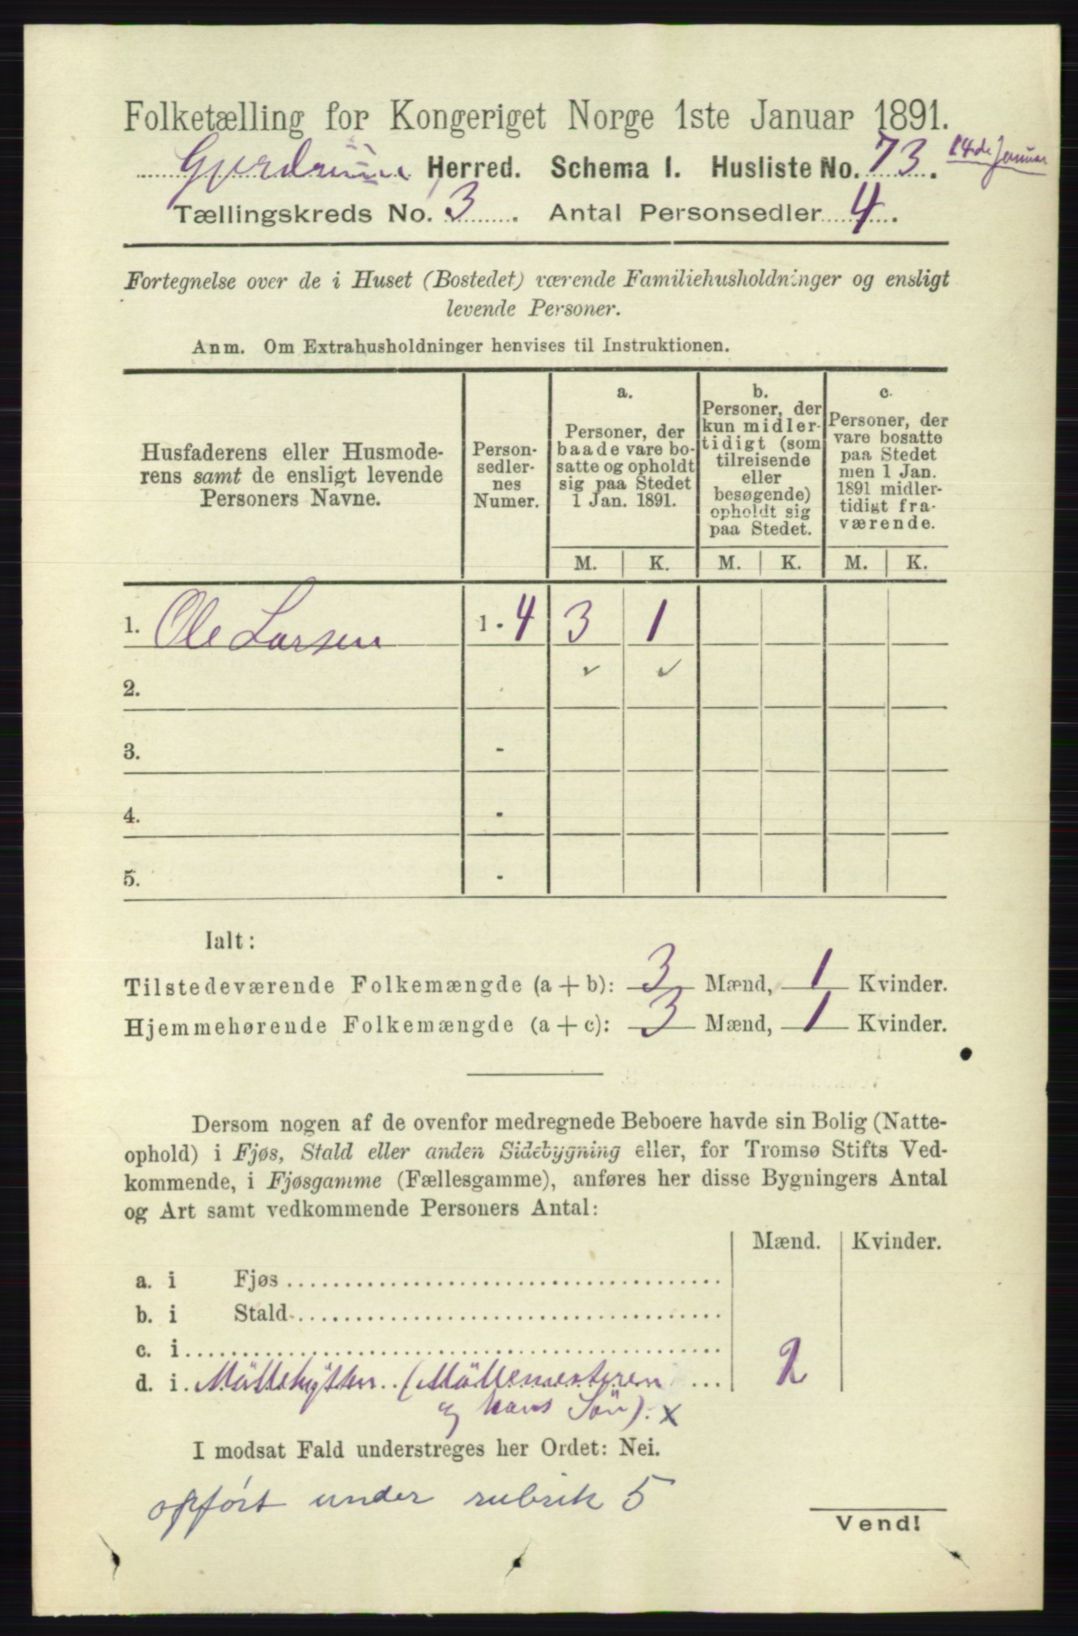 Folketælling for Kongeriget Norge 1ste Januar 1891.
Gjerdrum Herred. Schema I. Husliste No. 73. 14de Januar
Tællingskreds No. 3. Antal Personsedler 4.
Fortegnelse over de i Huset (Bostedet) værende Familiehusholdninger og ensligt
levende Personer.
Anm. Om Extrahusholdninger henvises til Instruktionen.
Husfaderens eller Husmode-
rens samt de ensligt levende
Personers Navne.
Person-
sedler-
nes
Numer.
a.
Personer, der
baade vare bo-
satte og opholdt
sig paa Stedet
1 Jan. 1891.
b.
Personer, der
kun midler-
tidigt (som
tilreisende
eller
besøgende)
opholdt sig
paa Stedet.
c.
Personer, der
vare bosatte
paa Stedet
men 1 Jan.
1891 midler-
tidigt fra-
værende.
M. K. M. K. M. K.
1. Ole Larsen 1 - 4 3 1
2.
3. -
4. -
5. -
Ialt:
Tilstedeværende Folkemængde (a + b): 3 Mænd, 1 Kvinder.
Hjemmehørende Folkemængde (a + c): 3 Mænd, 1 Kvinder.
Dersom nogen af de ovenfor medregnede Beboere havde sin Bolig (Natte-
ophold) i Fjøs, Stald eller anden Sidebygning eller, for Tromsø Stifts Ved-
kommende, i Fjøsgamme (Fællesgamme), anføres her disse Bygningers Antal
og Art samt vedkommende Personers Antal:
Mænd. Kvinder.
a. i Fjøs
b. i Stald
c. i
d. i Möllehytten (Möllemesteren 2
og hans Sön). x
I modsat Fald understreges her Ordet: Nei.
opført under rubrik 5
Vend!